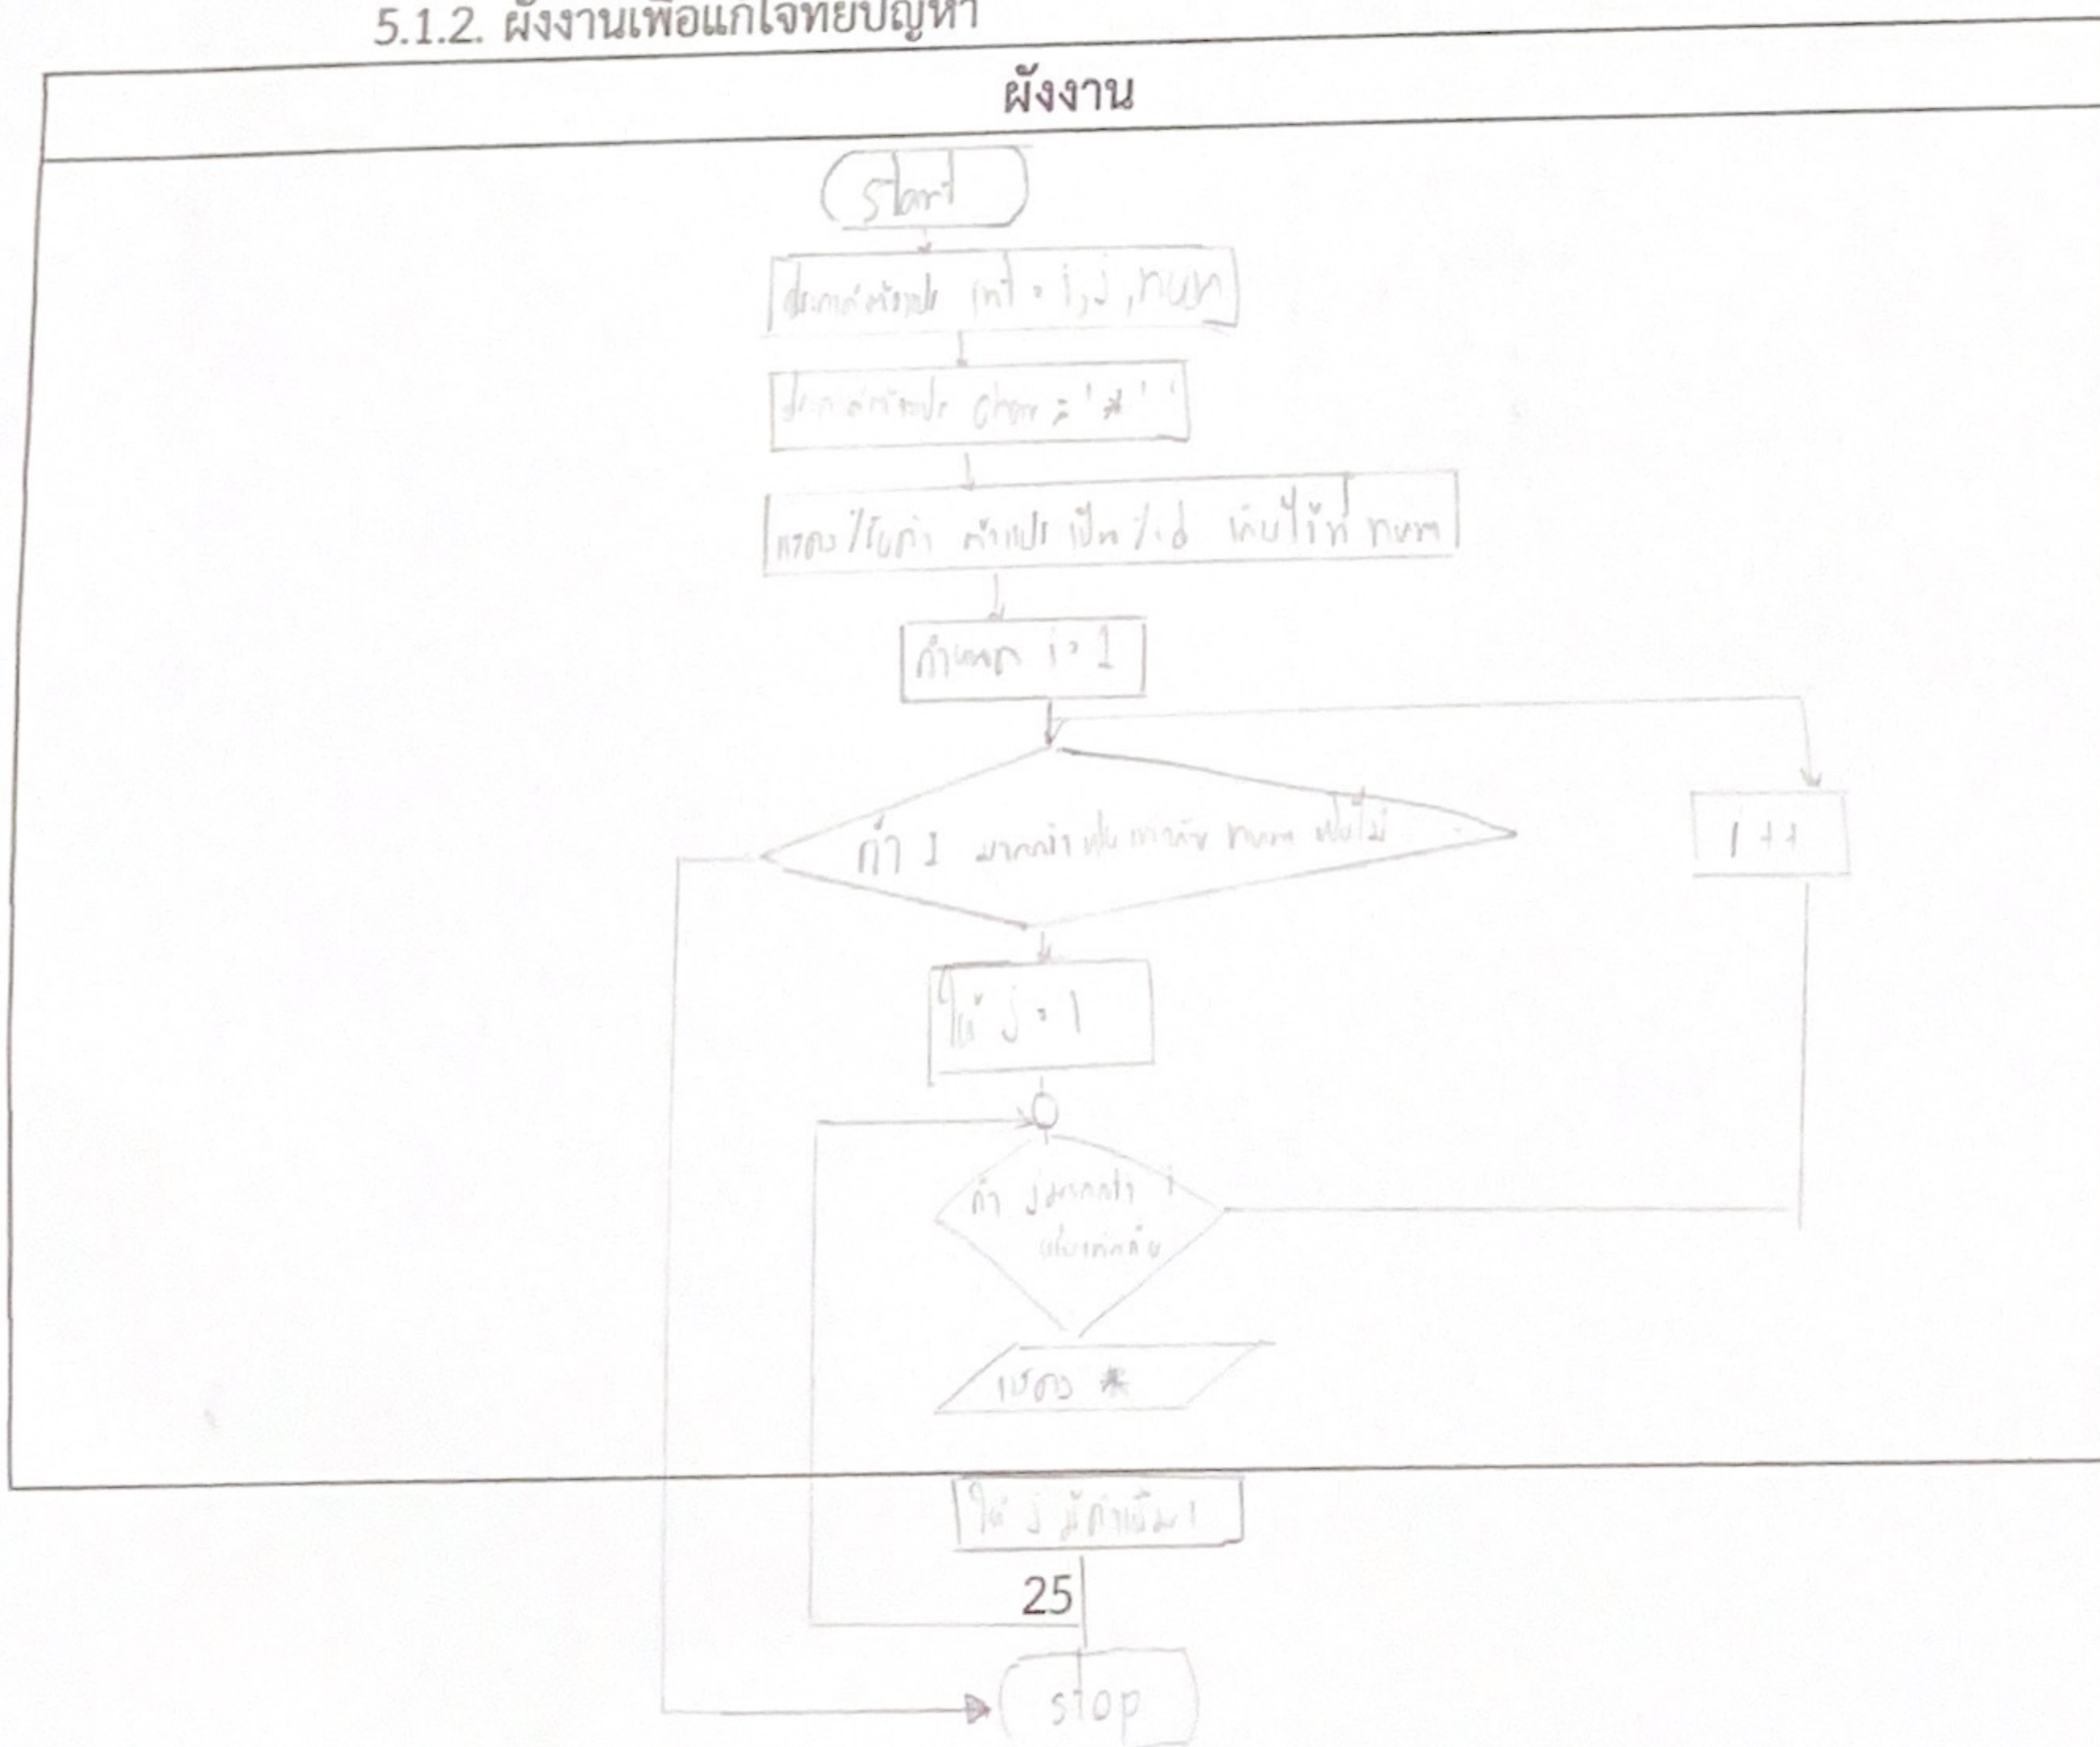 5.1.2. ผังงานเพื่อแก้โจทย์ปัญหา
ผังงาน
Start
ประกาศตัวแปร int = i, j, num
ประกาศตัวแปร char = '*'
แสดง/รับค่า ตัวแปร เป็น %d เก็บไว้ที่ num
กำหนด i = 1
ถ้า I มากกว่า หรือ เท่ากับ num หรือไม่
i++
ให้ j = 1
ถ้า j มากกว่า i
หรือเท่ากับ
แสดง *
ให้ j มีค่าเพิ่ม 1
25
stop